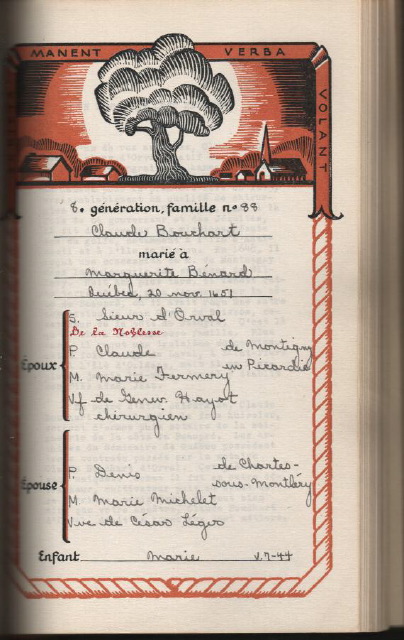 MANENT VERBA
VOLANT
8e génération, famille no 88
Claude Bouchart
marié à
Marguerite Bénard
Québec, 20 nov. 1651
S. Sieurs d'Orval
De la Noblesse
Époux
P. Claude de Montigny
en Picardie
M. Marie Fermery
Vf de Genev. Hayot
chirurgien
Épouse
P. Denis de Chartes-
sous-Montléry
M. Marie Michelet
Vve de César Léger
Enfant Marie V.7-44